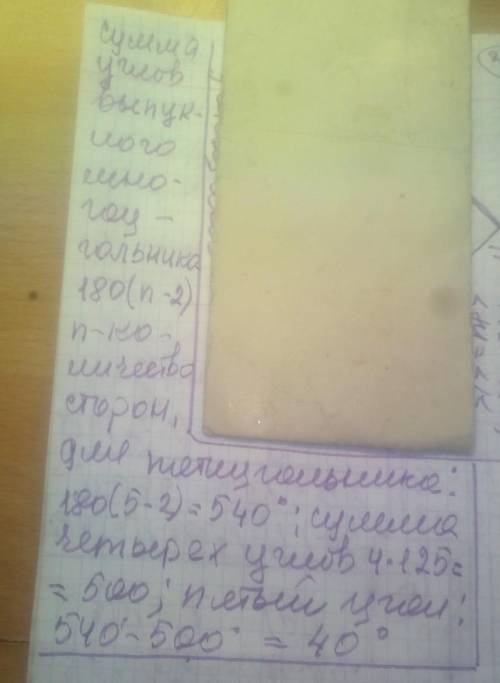 сумма
углов
выпук-
лого
мно-
гоу-
гольника
180(n-2)
n-ко-
личество
сторон,
для пятиугольника:
180(5-2)=540°; сумма
четырех углов 4·125=
=500; пятый угол:
540°-500° = 40°